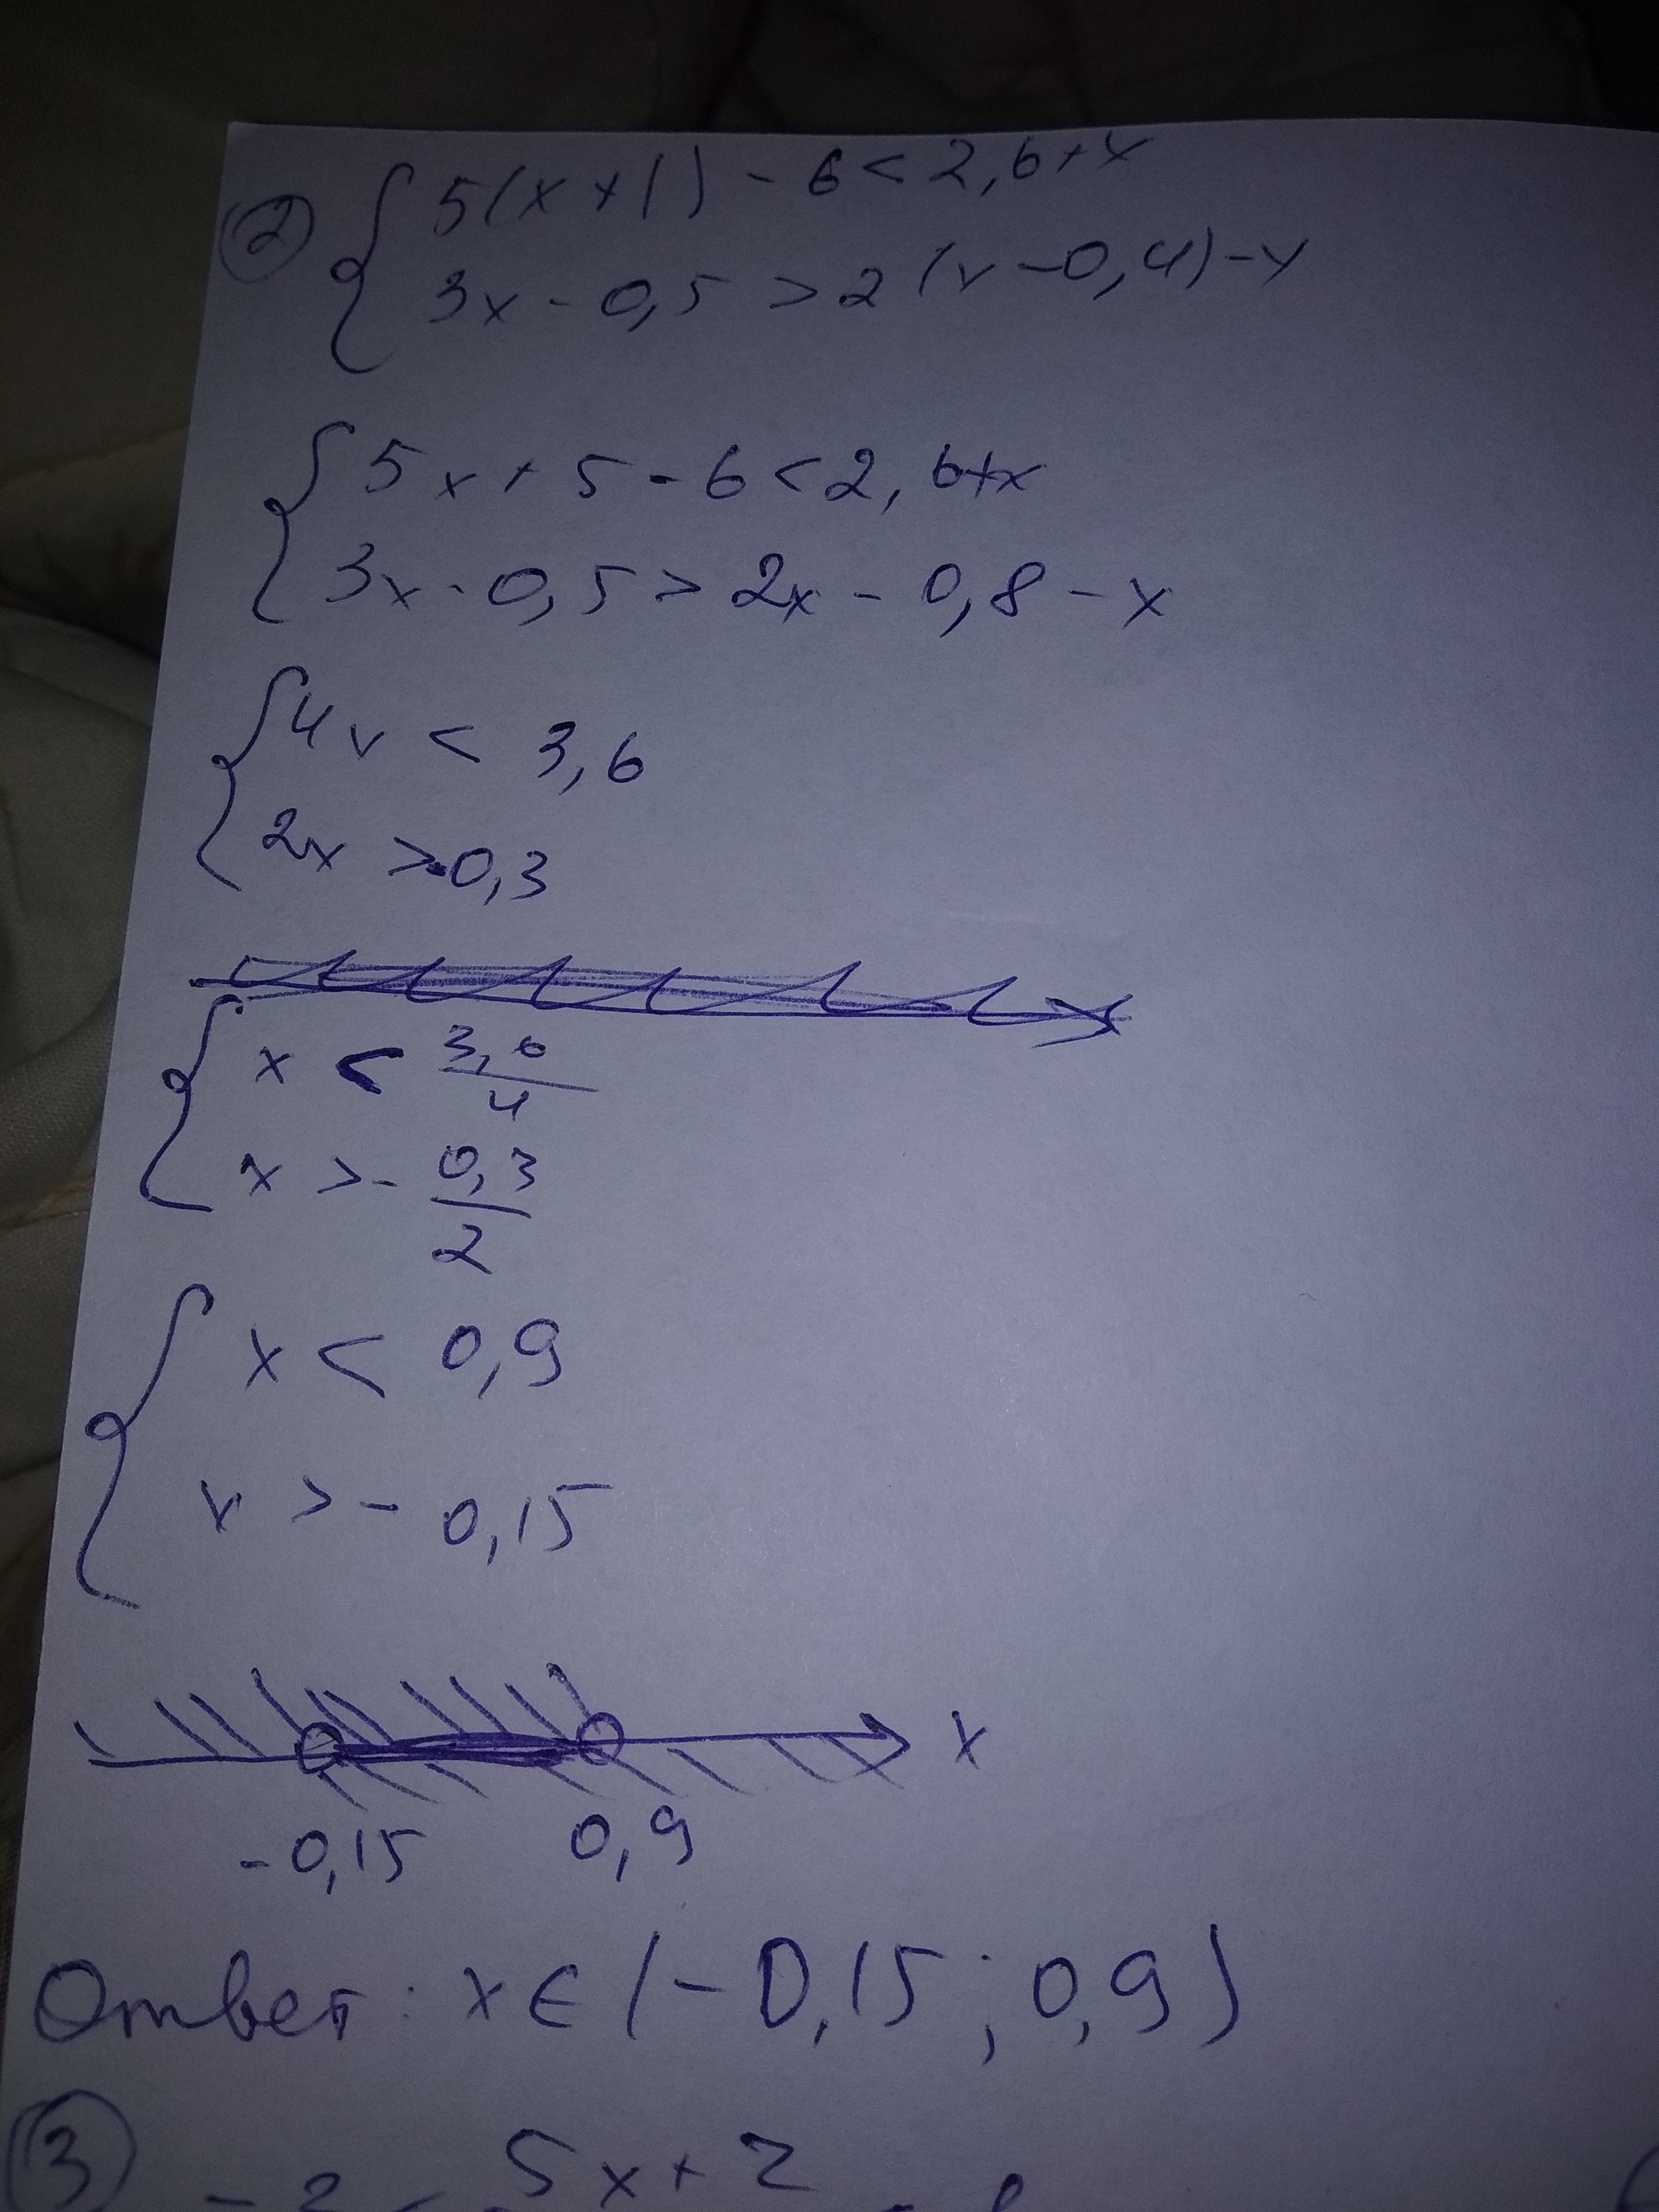 ② { 5(x+1) - 6 < 2,6+x
3x - 0,5 > 2(x-0,4)-x
{ 5x + 5 - 6 < 2,6+x
3x - 0,5 > 2x - 0,8 - x
{ 4x < 3,6
2x > -0,3
{ x < 3,6/4
x > - 0,3/2
{ x < 0,9
x > - 0,15
x
-0,15 0,9
Ответ: x ∈ (-0,15; 0,9)
③
5x+2